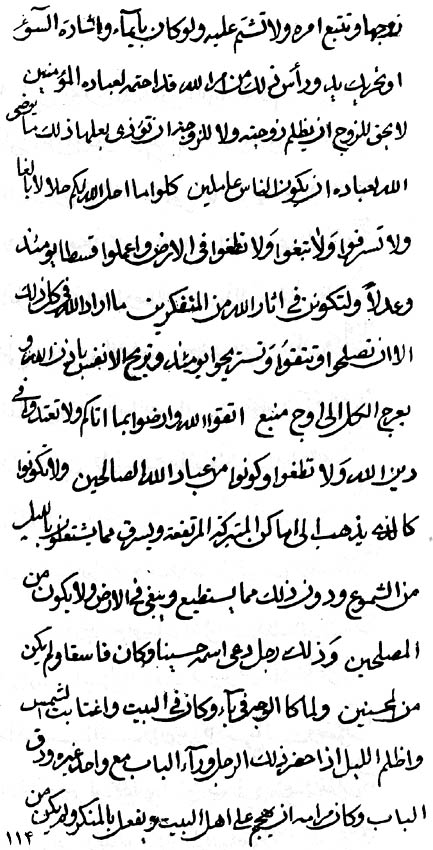 زوجها وتتبع امره ولا تشتم عليه ولو كان بايماء وباشارة السوء
او تحريك يد ودأس ذلك من امر الله قد احتمه لعباده المؤمنين
لا يحق للزوج ان يظلم زوجته ولا للزوجة ان تؤذى بعلها ذلك ما يوصى
الله لعباده ان يكون الناس عاملين كلوا مما احل الله لكم حلالا بالغا
ولا تسرفوا ولا تبغوا ولا تطغوا فى الارض واعملوا قسطا يومئذ
وعدلاً ولتكونن فى اثار الله من المتفكرين ما اراد الله فى كل ذلك
الا ان تصلحوا وتتقوا وتستريحوا يومئذ وتريح الانفس باذن الله و
يعرج الكل الى اوج منيع اتقوا الله وارضوا بما اتاكم ولا تعتدوا فى
دين الله ولا تطغوا وكونوا من عباد الله الصالحين ولا تكونوا
كالذى يذهب الى اماكن المتبركة المرتفعة ويسرق مما يشتعلون بالليل
من الشموع ودون ذلك مما يستطيع ويبغى فى الارض ولا يكون من
المصلحين وذلك رجل دعى اسمه حسينا وكان فاسقا ولم يكن
من المحسنين ولما كا الوجه فى باء وكان فى البيت واغتابت الشمس
واظلم الليل اذا حضر ذلك الرجل ورآء الباب مع واحد غيره ودق
الباب وكان مرامه ان يهجم على اهل البيت ويفعل بالمنكر ولم يكن من
١١٤